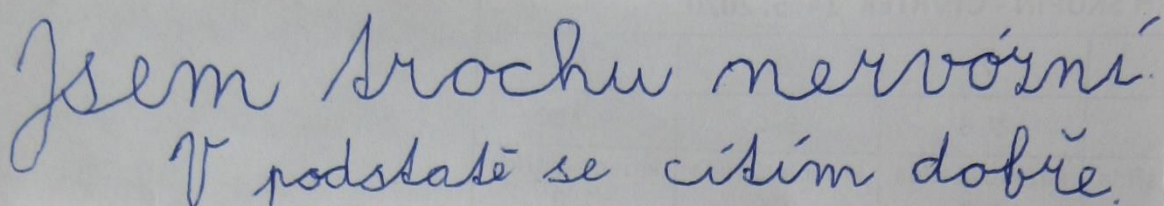 Jsem trochu nervózní.
V podstatě se cítím dobře.